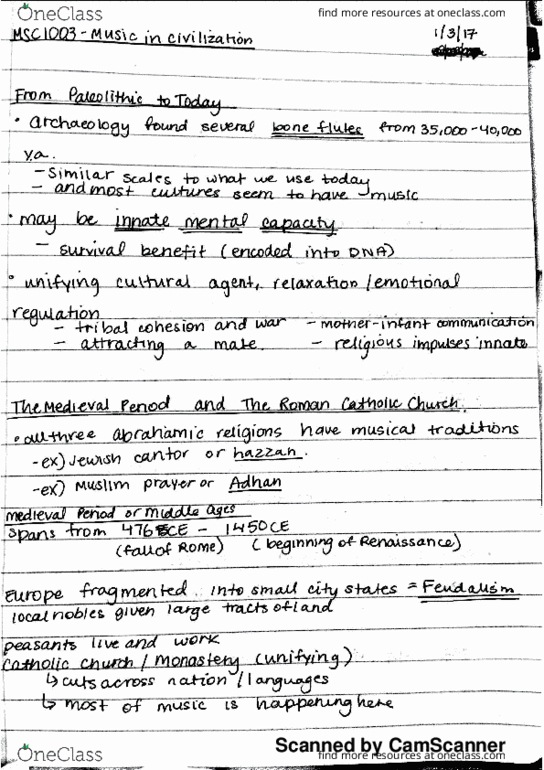 OneClass
find more resources at oneclass.com
MSC1003 - Music in Civilization
1/3/17
From Paleolithic to Today
• Archaeology found several bone flutes from 35,000-40,000
y.a.
- Similar scales to what we use today
- and most cultures seem to have music
• may be innate mental capacity
- survival benefit (encoded into DNA)
• unifying cultural agent, relaxation/emotional
regulation
- tribal cohesion and war - mother-infant communication
- attracting a mate - religious impulses innate
The Medieval Period and The Roman Catholic Church.
• all three abrahamic religions have musical traditions
- ex) Jewish cantor or hazzah.
- ex) Muslim prayer or Adhan
Medieval Period or Middle Ages
spans from 476 CE - 1450CE
(fall of Rome) (beginning of Renaissance)
Europe fragmented into small city states = Feudalism
local nobles given large tracts of land
peasants live and work
Catholic church / Monastery (unifying)
↳ cuts across nation / languages
↳ most of music is happening here
Scanned by CamScanner
OneClass
find more resources at oneclass.com